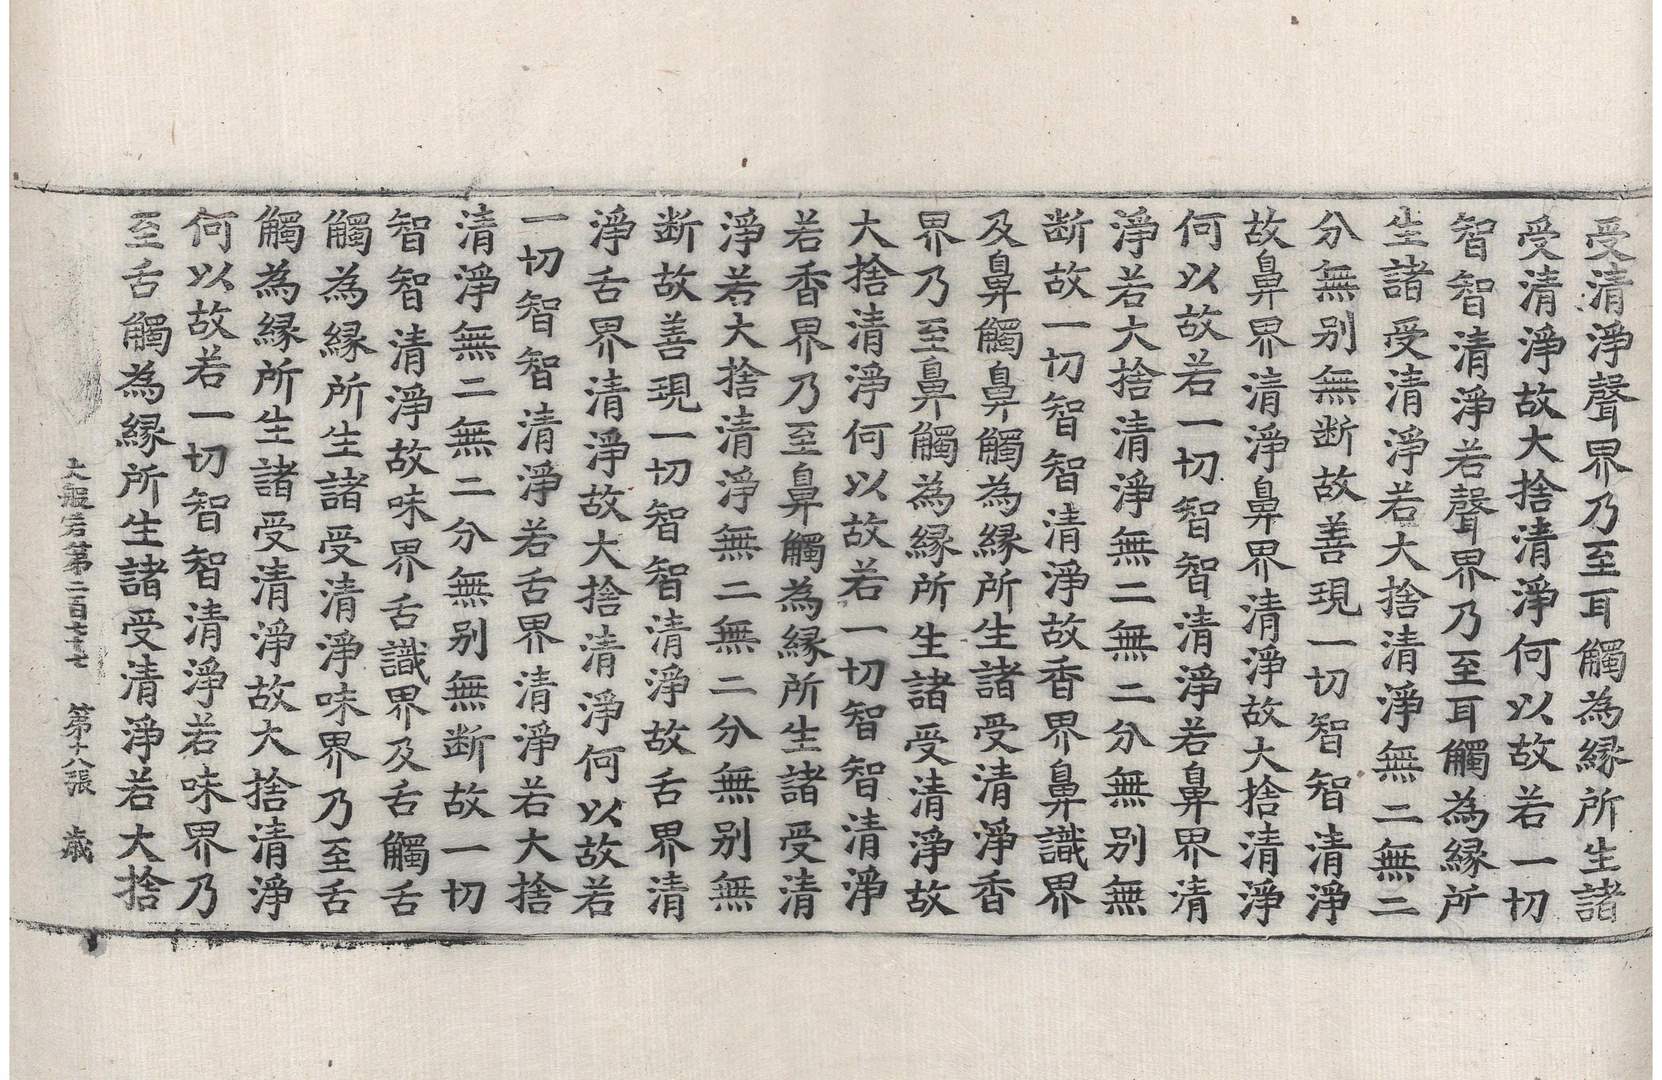 受清淨聲界乃至耳觸為縁所生諸
受清淨故大捨清淨何以故若一切
智智清淨若聲界乃至耳觸為縁所
生諸受清淨若大捨清淨無二無二
分無别無断故善現一切智智清淨
故鼻界清淨鼻界清淨故大捨清淨
何以故若一切智智清淨若鼻界清
淨若大捨清淨無二無二分無别無
断故一切智智清淨故香界鼻識界
及鼻觸鼻觸為縁所生諸受清淨香
界乃至鼻觸為縁所生諸受清淨故
大捨清淨何以故若一切智智清淨
若香界乃至鼻觸為縁所生諸受清
淨若大捨清淨無二無二分無别無
断故善現一切智智清淨故舌界清
淨舌界清淨故大捨清淨何以故若
一切智智清淨若舌界清淨若大捨
清淨無二無二分無别無断故一切
智智清淨故味界舌識界及舌觸舌
觸為縁所生諸受清淨味界乃至舌
觸為縁所生諸受清淨故大捨清淨
何以故若一切智智清淨若味界乃
至舌觸為縁所生諸受清淨若大捨
大般若第二百七十七 第十八張 歳